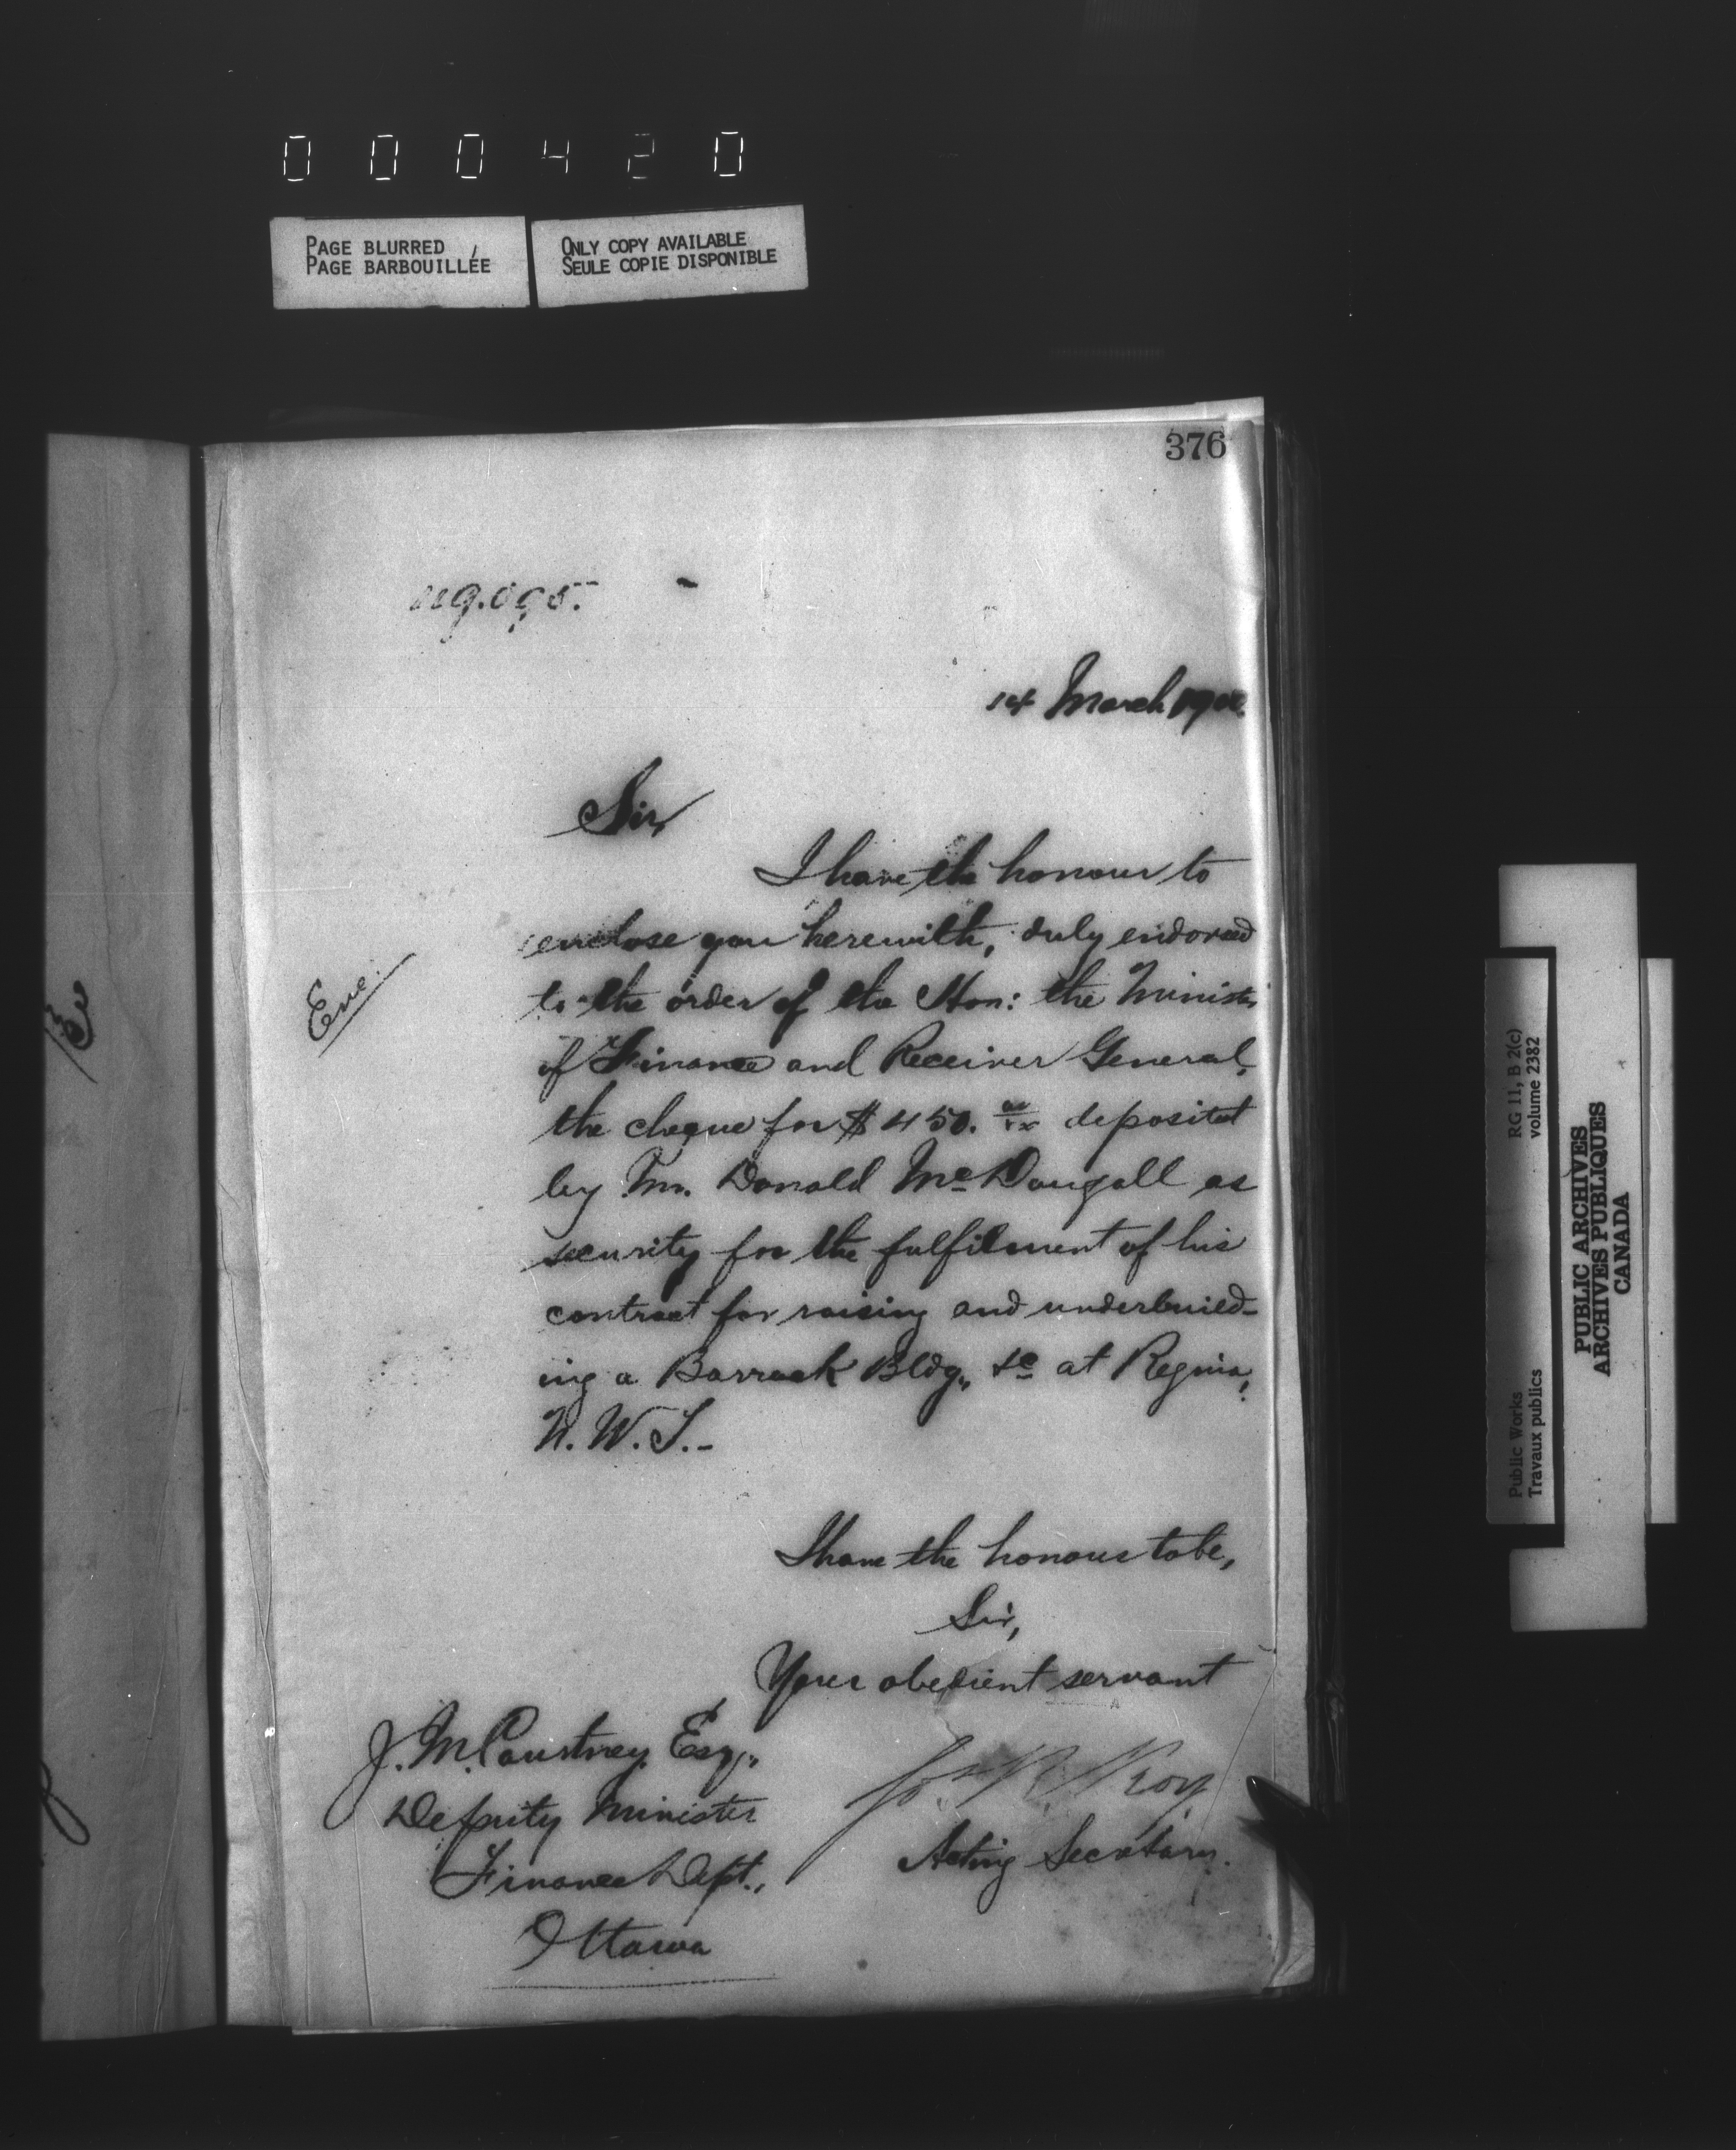 000420
PAGE BLURRED
PAGE BARBOUILLÉE
ONLY COPY AVAILABLE
SEULE COPIE DISPONIBLE
376
14 March 1900.
Sir,
I have the honour to
enclose you herewith, duly endorsed
Enc.
to the order of the Hon: the Minister
of Finance and Receiver General,
the cheque for $450. deposited
by Mr. Donald McDougall as
security for the fulfilment of his
contract for raising and underbuild-
ing a Barrack Bldg., &c at Regina,
N. W. T.-
I have the honour to be,
Sir,
Your obedient servant
J. M. Courtney Esq.,
Deputy Minister
Finance Dept.,
Ottawa
Jos. R. Roy
Acting Secretary.
Public Works
Travaux publics
RG 11, B 2(c)
volume 2382
PUBLIC ARCHIVES
ARCHIVES PUBLIQUES
CANADA